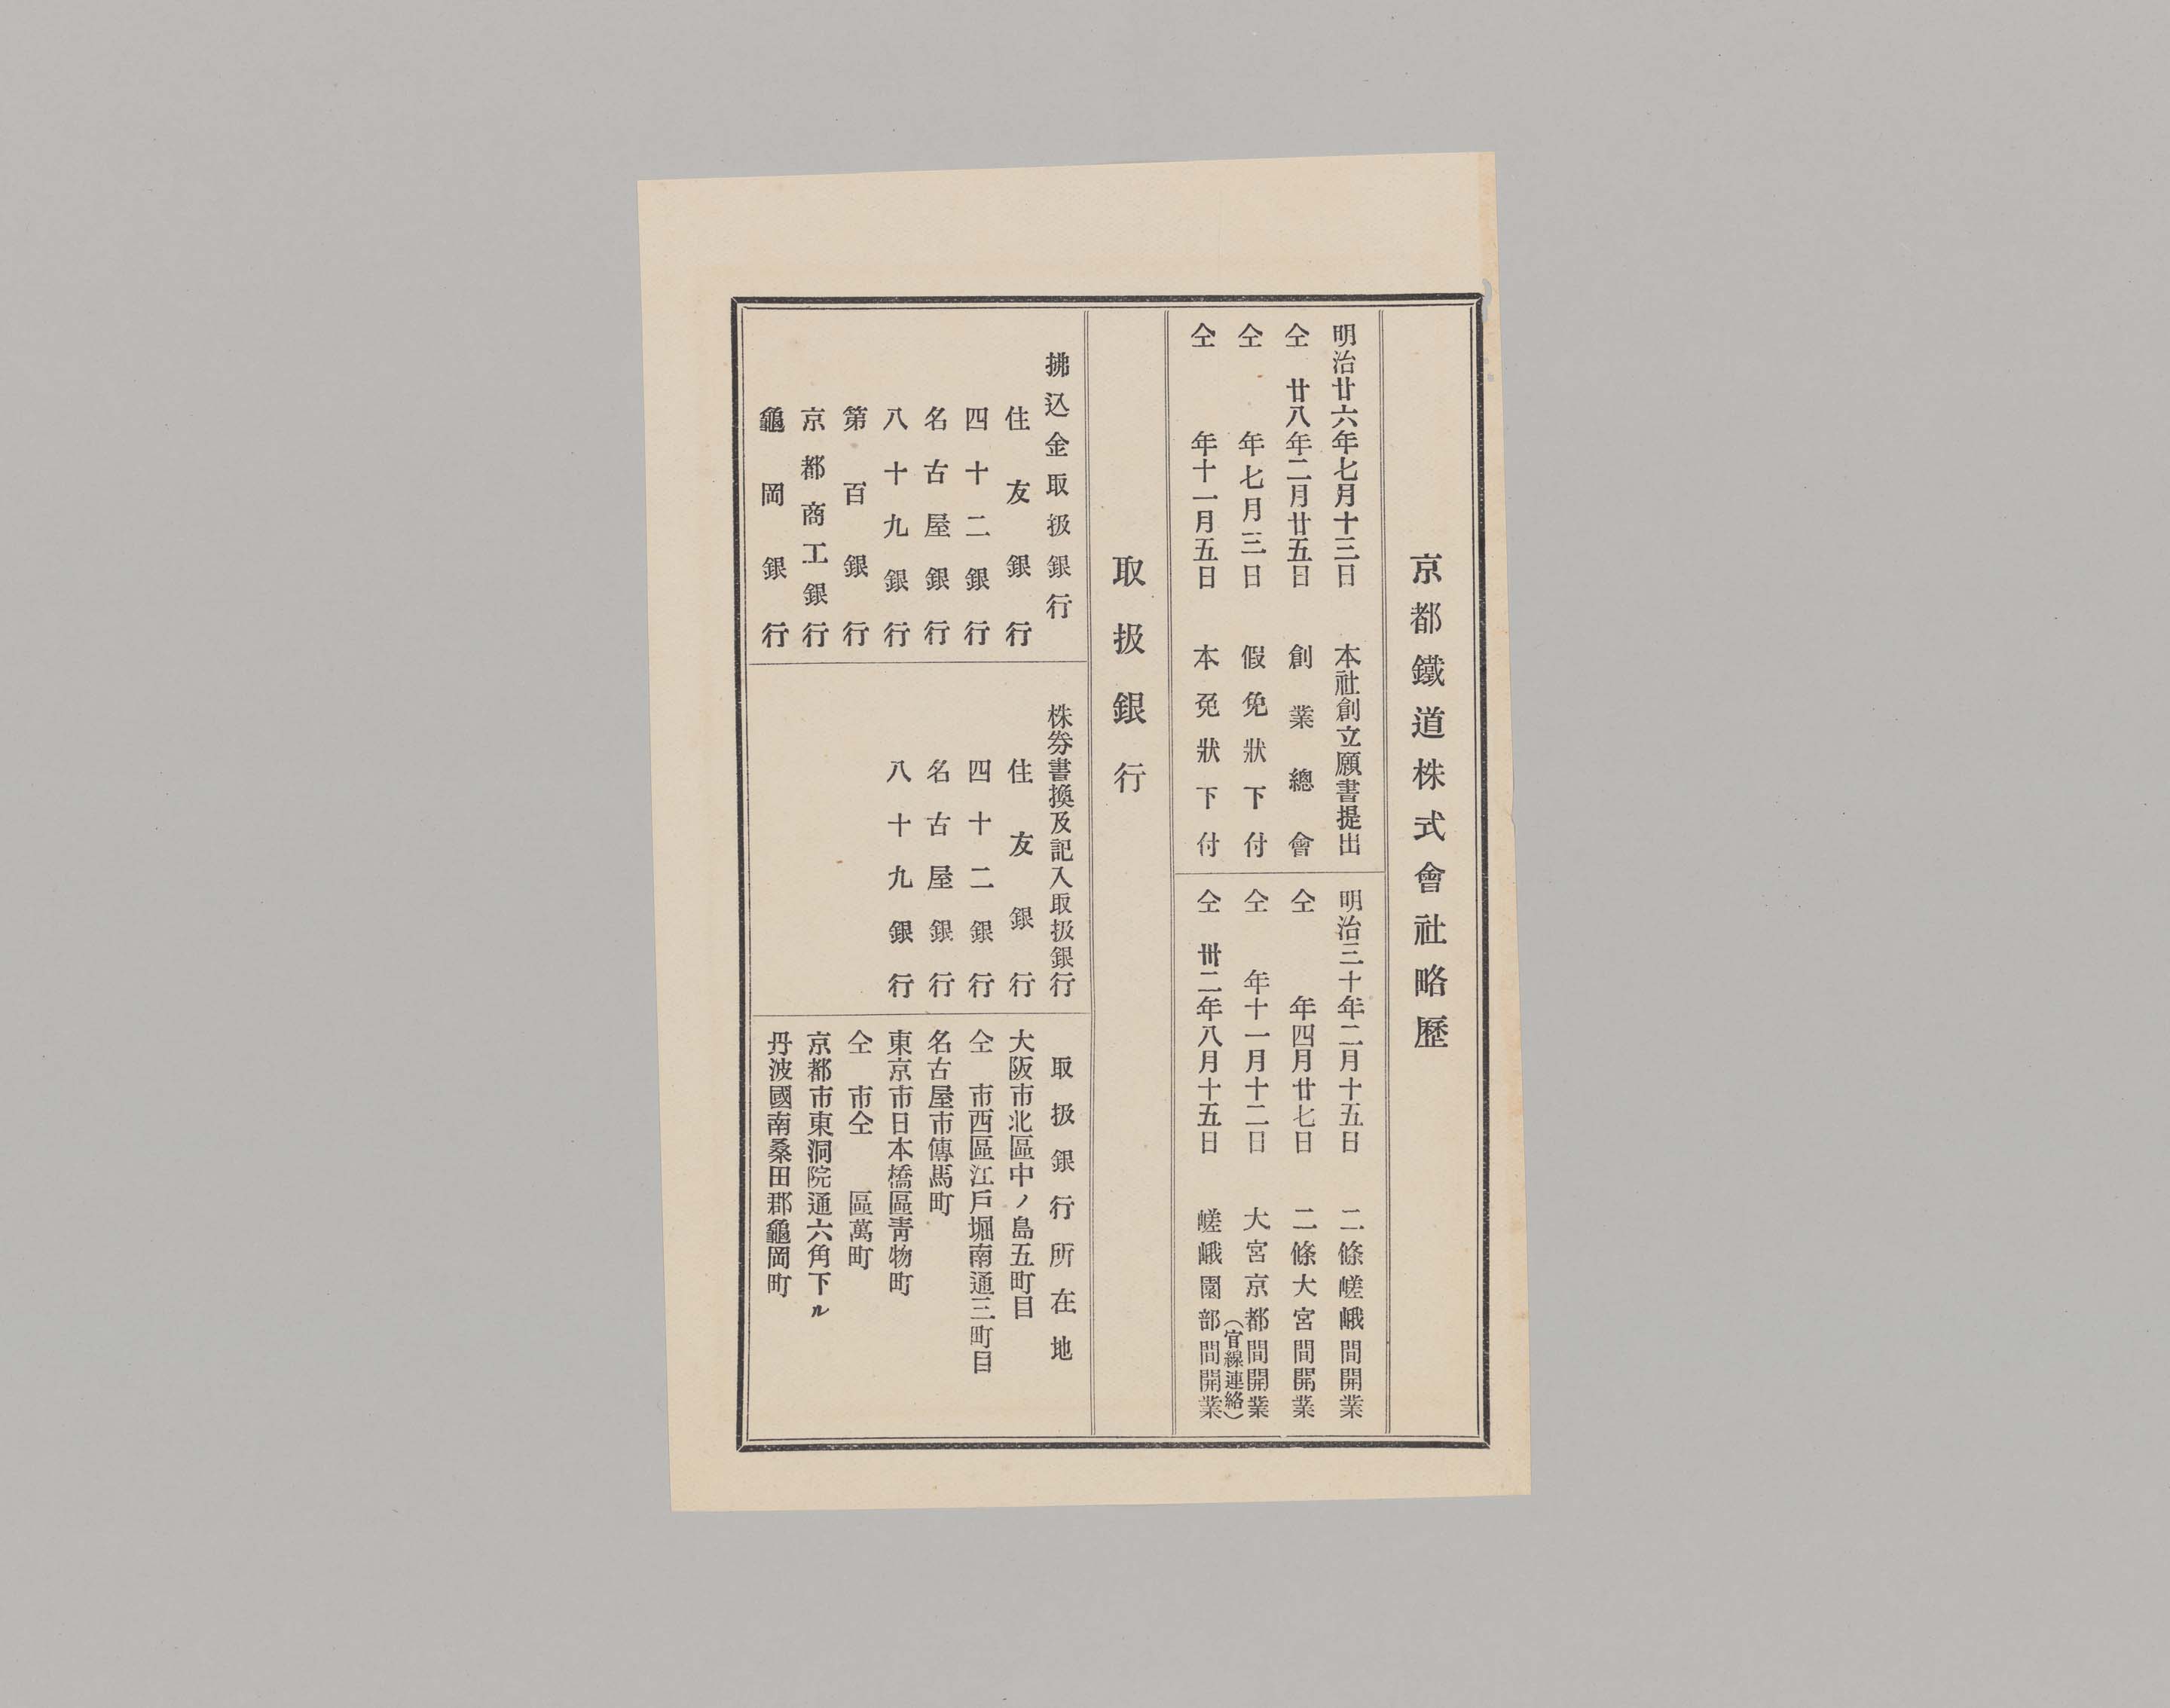 京都鐵道株式會社略歷
明治廿六年七月十三日 本社創立願書提出
仝 廿八年二月廿五日 創業總會
仝 年七月三日 假免狀下付
仝 年十一月五日 本免狀下付
明治三十年二月十五日 二條嵯峨間開業
仝 年四月廿七日 二條大宮間開業
仝 年十一月十二日 大宮京都間開業
(官線連絡)
仝 卅二年八月十五日 嵯峨園部間開業
取扱銀行
拂込金取扱銀行
住友銀行
四十二銀行
名古屋銀行
八十九銀行
第百銀行
京都商工銀行
龜岡銀行
株劵書換及記入取扱銀行
住友銀行
四十二銀行
名古屋銀行
八十九銀行
取扱銀行所在地
大阪市北區中ノ島五町目
仝 市西區江戶堀南通三町目
名古屋市傳馬町
東京市日本橋區靑物町
仝 市仝 區萬町
京都市東洞院通六角下ル
丹波國南桑田郡龜岡町